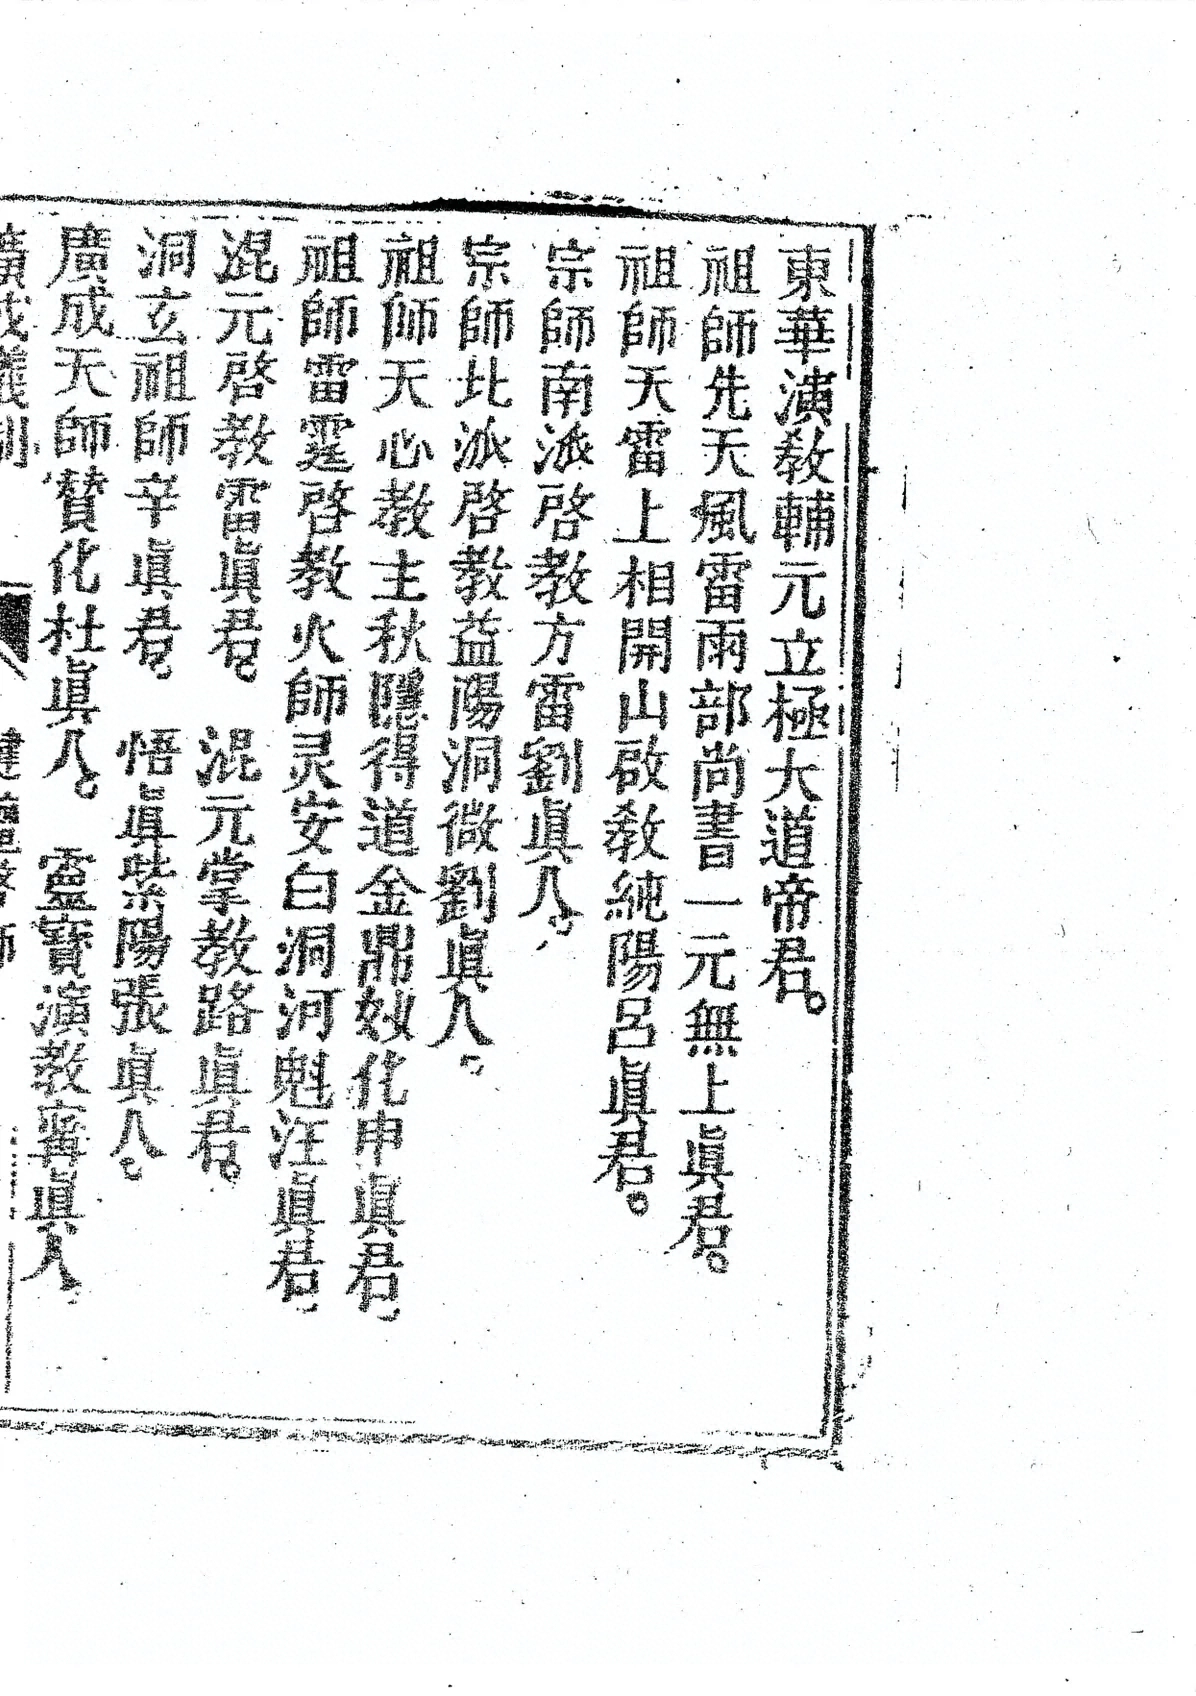 東華演教輔元立極大道帝君。
祖師先天風雷雨部尚書一元無上眞君。
祖師天雷上相開山啟教純陽呂眞君。
宗師南派啓教方雷劉眞人。
宗師北派啓教益陽洞微劉眞人。
祖師天心教主秋隱得道金鼎妙化申眞君。
祖師雷霆啓教火師灵安白洞河魁汪眞君。
混元啓教雷眞君。　混元掌教路眞君。
洞玄祖師辛眞君。　悟眞紫陽張眞人。
廣成天師贊化杜眞人。　靈寶演教甯眞人。
廣成儀制